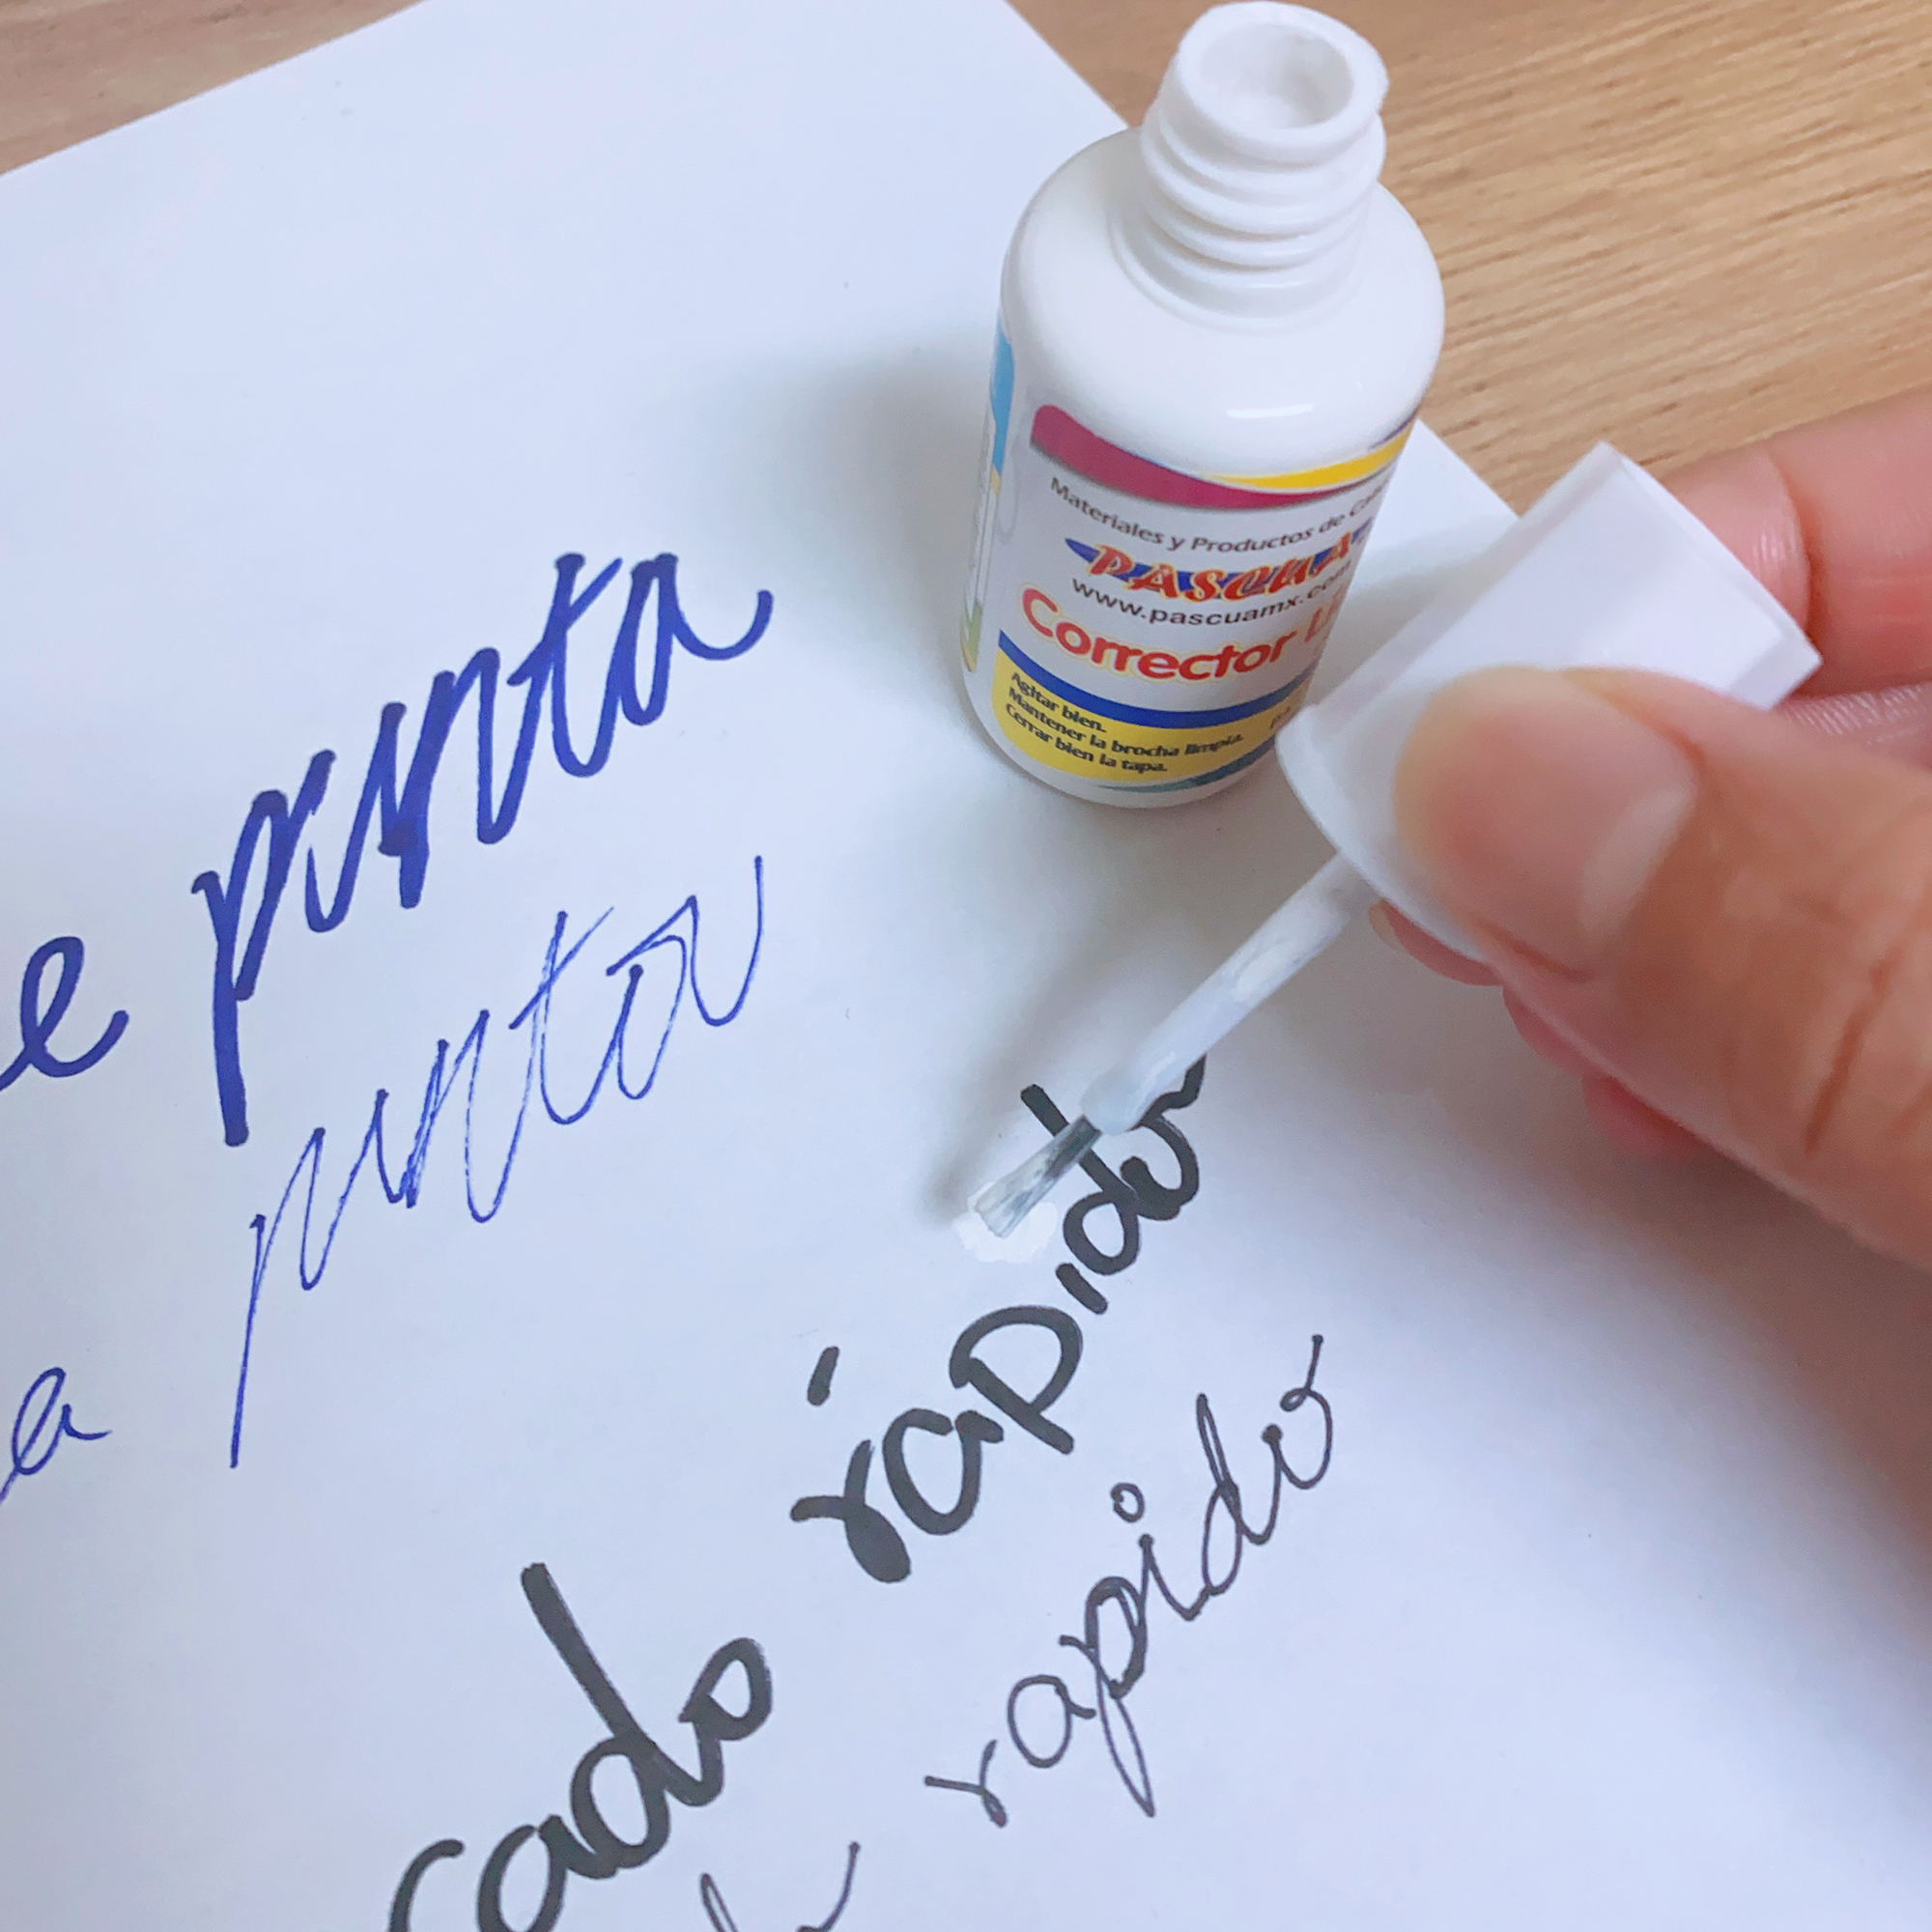 Materiales y Productos de
PASCUA
www.pascuamx.com
Corrector
Agitar bien.
Mantener la brocha limpia.
Cerrar bien la tapa.
punta
punta
rápido
rapido